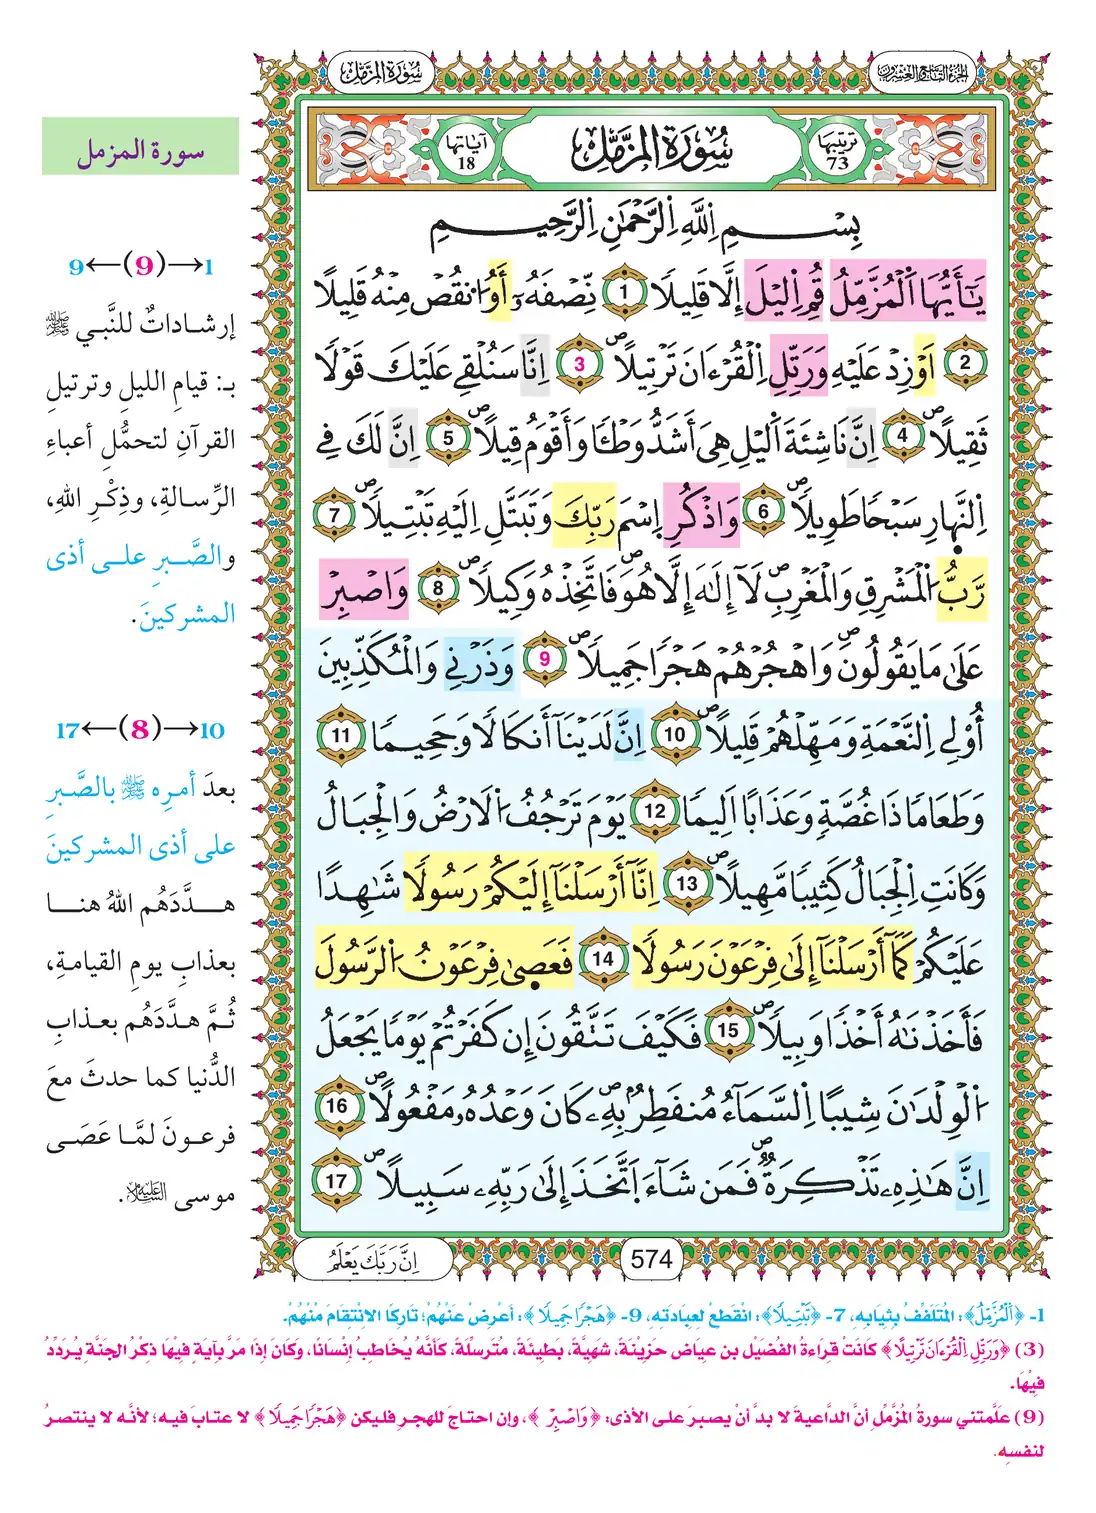 سُورَةُ المُزَّمِّل
الجزء التاسع والعشرون
سورة المزمل
آيَاتُهَا 18
سُورَةُ المُزَّمِّل
ترتيبها 73
بِسْمِ اِ۬للَّهِ اِ۬لرَّحْمَٰنِ اِ۬لرَّحِيمِ
يَٰٓأَيُّهَا اَ۬لْمُزَّمِّلُ قُمِ اِ۬ليْلَ إِلَّا قَلِيلًا 1 نِّصْفَهُۥٓ أَوُ اُ۟نقُصْ مِنْهُ قَلِيلًا
2 اَوْ زِدْ عَلَيْهِ وَرَتِّلِ اِ۬لْقُرْءَانَ تَرْتِيلًا 3 اِنَّا سَنُلْقِے عَلَيْكَ قَوْلًا
ثَقِيلًا 4 اِنَّ نَاشِئَةَ اَ۬ليْلِ هِيَ أَشَدُّ وَطْـٔٗا وَأَقْوَمُ قِيلًا 5 اِنَّ لَكَ فِے
اِ۬لنَّهَارِ سَبْحٗا طَوِيلًا 6 وَاذْكُرِ اِ۪سْمَ رَبِّكَ وَتَبَتَّلِ اِلَيْهِ تَبْتِيلًا 7
رَّبُّ اُ۬لْمَشْرِقِ وَالْمَغْرِبِ لَآ إِلَٰهَ إِلَّا هُوَ فَاتَّخِذْهُ وَكِيلًا 8 وَاصْبِرْ
عَلَىٰ مَا يَقُولُونَ وَاهْجُرْهُمْ هَجْرٗا جَمِيلًا 9 وَذَرْنِے وَالْمُكَذِّبِينَ
أُوْلِے اِ۬لنَّعْمَةِ وَمَهِّلْهُمْ قَلِيلًا 10 اِنَّ لَدَيْنَآ أَنكَالٗا وَجَحِيمٗا 11
وَطَعَامٗا ذَا غُصَّةٖ وَعَذَابًا اَلِيمٗا 12 يَوْمَ تَرْجُفُ اُ۬لَارْضُ وَالْجِبَالُ
وَكَانَتِ اِ۬لْجِبَالُ كَثِيبٗا مَّهِيلًا 13 اِنَّآ أَرْسَلْنَآ إِلَيْكُمْ رَسُولٗا شَٰهِدًا
عَلَيْكُمْ كَمَآ أَرْسَلْنَآ إِلَىٰ فِرْعَوْنَ رَسُولٗا 14 فَعَصَىٰ فِرْعَوْنُ اُ۬لرَّسُولَ
فَأَخَذْنَٰهُ أَخْذٗا وَبِيلٗا 15 فَكَيْفَ تَتَّقُونَ إِن كَفَرْتُمْ يَوْمٗا يَجْعَلُ
اُ۬لْوِلْدَٰنَ شِيبًا اِ۬لسَّمَآءُ مُنفَطِرُۢ بِهِۦ كَانَ وَعْدُهُۥ مَفْعُولًا 16
اِنَّ هَٰذِهِۦ تَذْكِرَةٞ فَمَن شَآءَ اَ۪تَّخَذَ إِلَىٰ رَبِّهِۦ سَبِيلًا 17
1→(9)←9
إرشاداتٌ للنَّبي ﷺ
بـ: قيامِ الليلِ وترتيلِ
القرآنِ لتحمُّلِ أعباءِ
الرِّسالةِ، وذِكْرِ اللهِ،
والصَّبرِ على أذى
المشركينَ.
10→(8)←17
بعدَ أمرِه ﷺ بالصَّبرِ
على أذى المشركينَ
هدَّدَهُم اللهُ هنا
بعذابِ يومِ القيامةِ،
ثُمَّ هدَّدَهُم بعذابِ
الدُّنيا كما حدثَ معَ
فرعونَ لمَّا عَصَى
موسى عليه السلام.
574
اِنَّ رَبَّكَ يَعْلَمُ
1- ﴿اَ۬لْمُزَّمِّلُ﴾: المُتَلَفِّفُ بِثِيَابِهِ، 7- ﴿تَبْتِيلًا﴾: انْقَطِعْ لِعِبَادَتِهِ، 9- ﴿هَجْرٗا جَمِيلًا﴾: أَعْرِضْ عَنْهُمْ؛ تَارِكًا الِانْتِقَامَ مِنْهُمْ.
(3) ﴿وَرَتِّلِ اِ۬لْقُرْءَانَ تَرْتِيلًا﴾ كَانَتْ قِرَاءَةُ الفُضَيْلِ بن عِيَاضٍ حَزِينَةً، شَهِيَّةً، بَطِيئَةً، مُتَرسِّلَةً، كَأنَّهُ يُخَاطِبُ إِنْسَانًا، وَكَانَ إِذَا مَرَّ بِآيَةٍ فِيْهَا ذِكْرُ الجَنَّةِ يُرَدِّدُ
فِيْهَا.
(9) علَّمتني سورةُ المُزَّمِّلِ أنَّ الداعيةَ لا بدَّ أنْ يصبرَ على الأذى: ﴿وَاصْبِرْ﴾، وإن احتاجَ للهجرِ فليكن ﴿هَجْرٗا جَمِيلًا﴾ لا عتابَ فيه؛ لأنَّه لا ينتصرُ
لنفسِه.